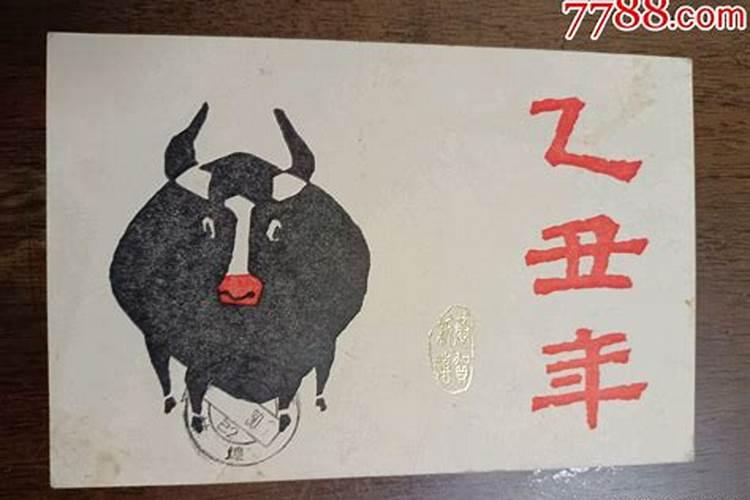 7788.com
乙
丑
年